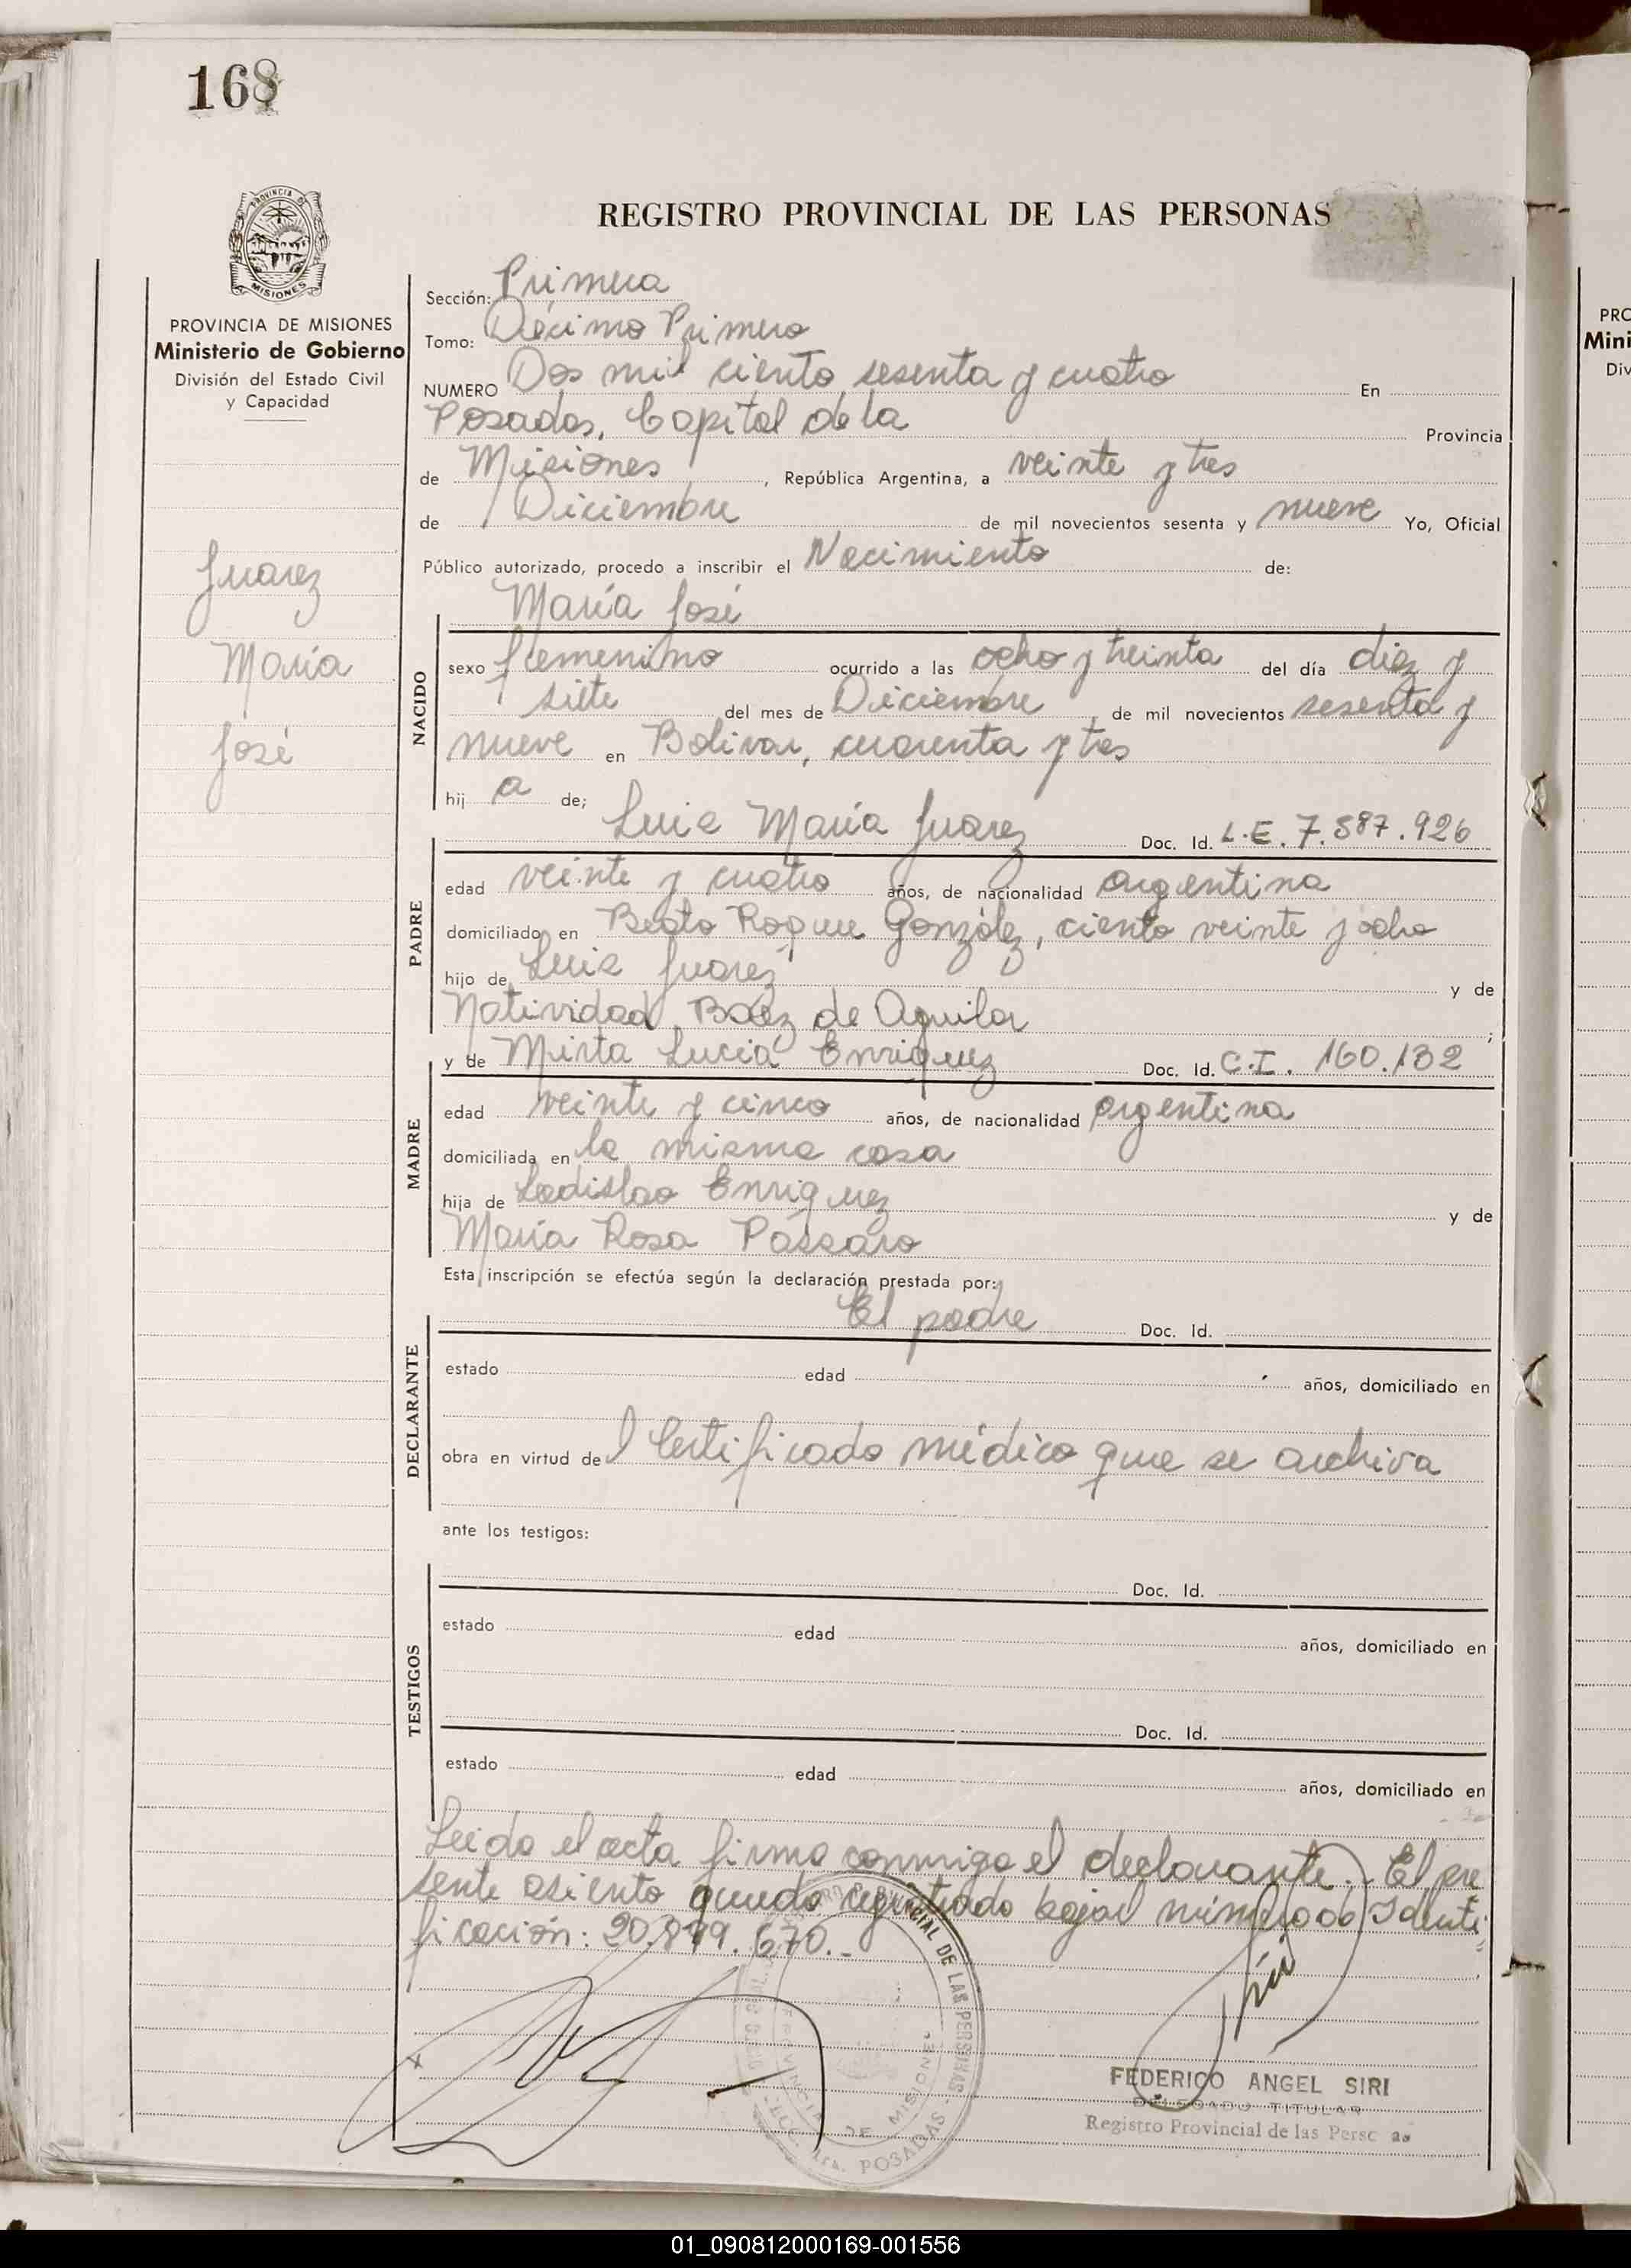 168
REGISTRO PROVINCIAL DE LAS PERSONAS
PROVINCIA DE MISIONES
Ministerio de Gobierno
División del Estado Civil
y Capacidad
Juarez
María
José
Sección: Primera
Tomo: Décimo Primero
NUMERO Dos mil ciento sesenta y cuatro En
Posadas, Capital de la Provincia
de Misiones, República Argentina, a veinte y tres
de Diciembre de mil novecientos sesenta y nueve Yo, Oficial
Público autorizado, procedo a inscribir el Nacimiento de:
María José
NACIDO
sexo femenino ocurrido a las ocho y treinta del día diez y
siete del mes de Diciembre, de mil novecientos sesenta y
nueve en Bolivar, cuarenta y tres
hij a de;
Luis María Juarez Doc. Id. L.E. 7.587.926
PADRE
edad veinte y cuatro años, de nacionalidad argentina
domiciliado en Beato Roque González, ciento veinte y ocho
hijo de Luis Juarez y de
Natividad Baez de Aguilar;
y de Mirta Lucia Enriquez Doc. Id. C.I. 160.132
MADRE
edad veinte y cinco años, de nacionalidad argentina
domiciliada en la misma casa
hija de Ladislao Enriquez y de
María Rosa Pássaro
Esta inscripción se efectúa según la declaración prestada por:
El padre Doc. Id.
DECLARANTE
estado edad años, domiciliado en
obra en virtud del Certificado médico que se archiva
ante los testigos:
Doc. Id.
TESTIGOS
estado edad años, domiciliado en
Doc. Id.
estado edad años, domiciliado en
Leida el acta firma conmigo el declarante. El pre
sente asiento queda registrado bajo el número de Identi
ficación: 20.899.670.-
FEDERICO ANGEL SIRI
DELEGADO TITULAR
Registro Provincial de las Persc as
PROVINCIAL DE LAS PERSONAS
PROVINCIA DE MISIONES
POSADAS
PRO
Mini
Div
01_090812000169-001556